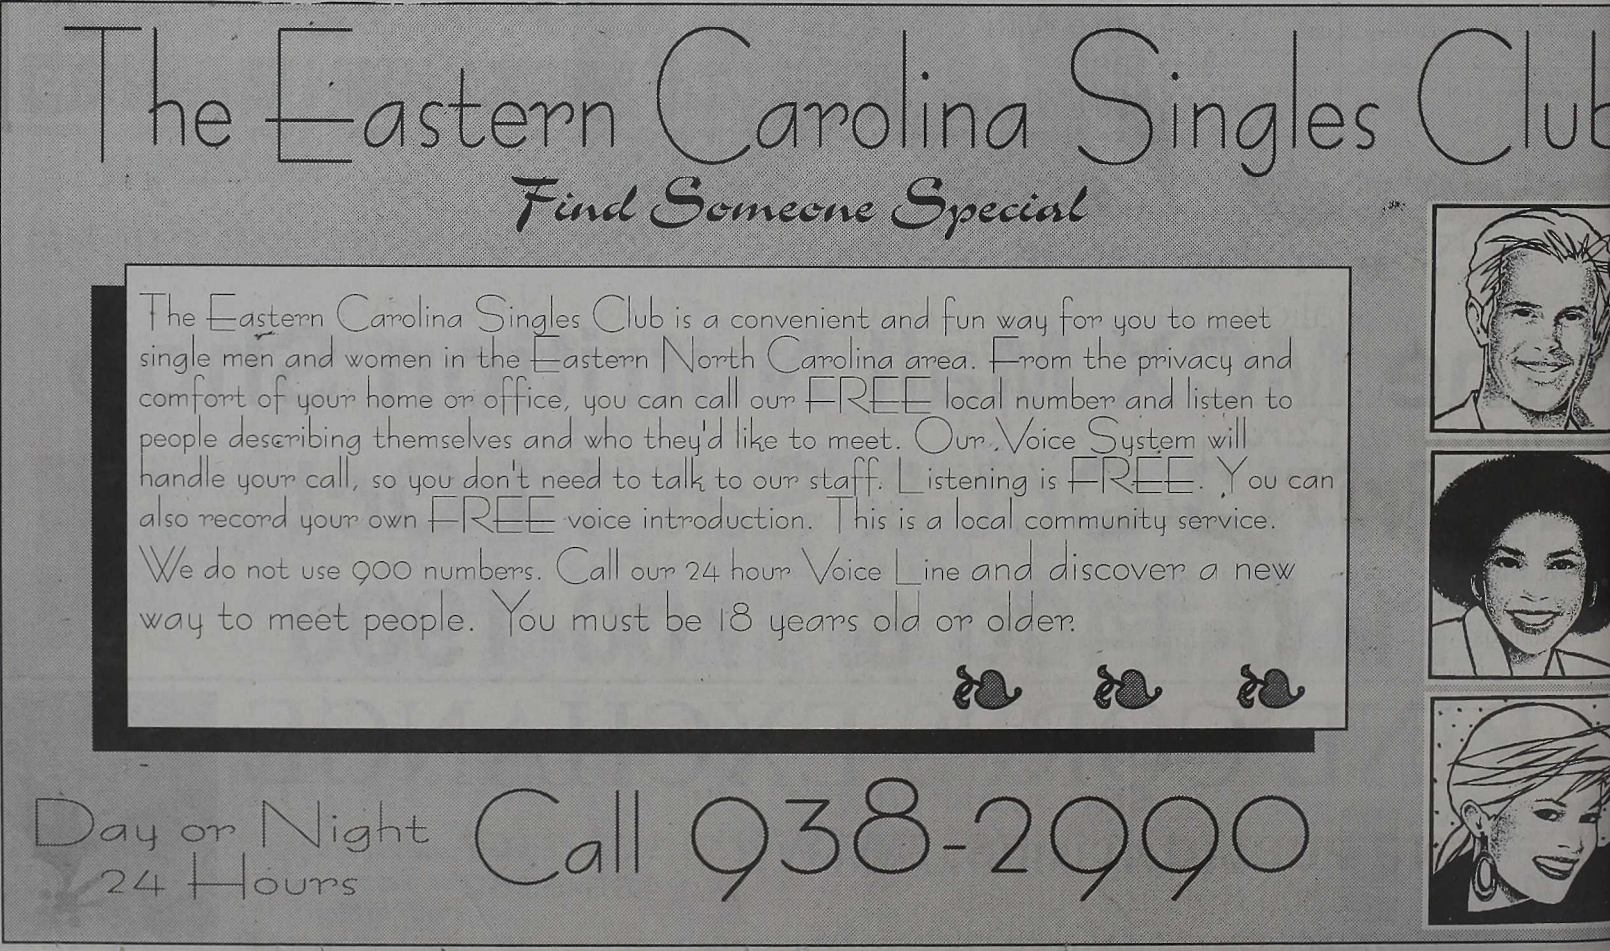 The Eastern Carolina Singles Club
Find Someone Special
The Eastern Carolina Singles Club is a convenient and fun way for you to meet
single men and women in the Eastern North Carolina area. From the privacy and
comfort of your home or office, you can call our FREE local number and listen to
people describing themselves and who they'd like to meet. Our Voice System will
handle your call, so you don't need to talk to our staff. Listening is FREE. You can
also record your own FREE voice introduction. This is a local community service.
We do not use 900 numbers. Call our 24 hour Voice Line and discover a new
way to meet people. You must be 18 years old or older.
Day or Night
24 Hours
Call 938-2990